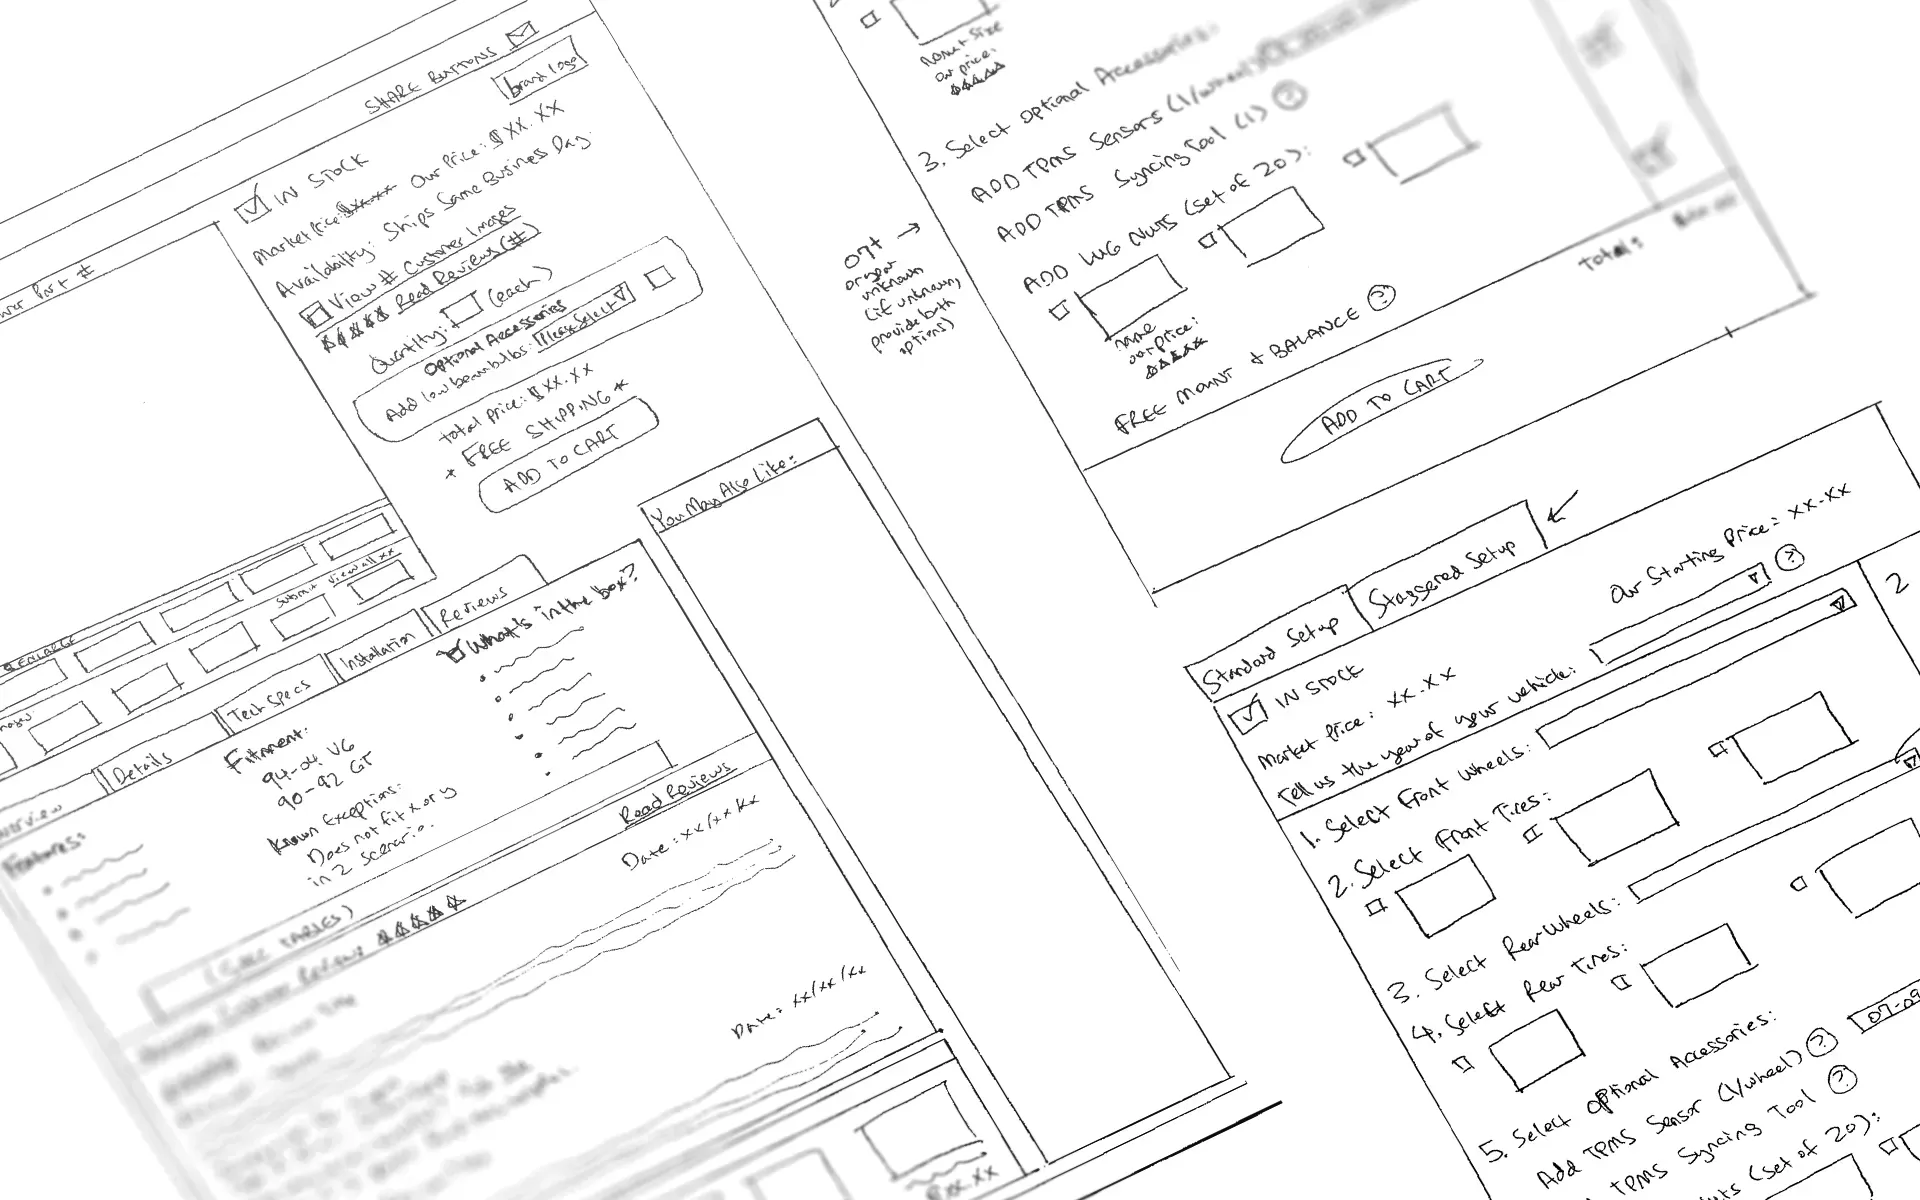 SHARE BUTTONS
brand logo
IN STOCK
Market Price: $xx.xx Our Price: $ XX.XX
Availability: Ships Same Business Day.
View # Customer Images
Read Reviews (#)
Quantity: (each)
Optional Accessories
Add low beam bulbs: Please Select
total price: $ XX.XX
* FREE SHIPPING *
ADD TO CART
Part #
ENLARGE
Submit View all xx
Details
Tech Specs
Installation
Reviews
Features:
Fitment:
94-04 V6
90-92 GT
Known Exceptions:
Does not fit x or y
in z scenario.
What's in the box?
Read Reviews
Date: xx/xx/xx
Date: xx/xx/xx
You May Also Like:
our price:
3. Select Optional Accessories:
ADD TPMS Sensors (1/wheel)
ADD TPMS Syncing Tool (1) ?
ADD LUG NUTS (set of 20):
name
our price:
FREE MOUNT & BALANCE ?
Total:
ADD TO CART
07+
or year
unknown
(if unknown,
provide both
options)
Standard Setup
Staggered Setup
IN STOCK
Market Price: XX.XX
Our Starting Price: XX.XX
Tell us the year of your vehicle: ?
2
1. Select Front Wheels:
2. Select Front Tires:
3. Select Rear Wheels:
4. Select Rear Tires:
5. Select Optional Accessories:
Add TPMS Sensor (1/wheel) ?
07-09
TPMS Syncing Tool ?
(set of 20):